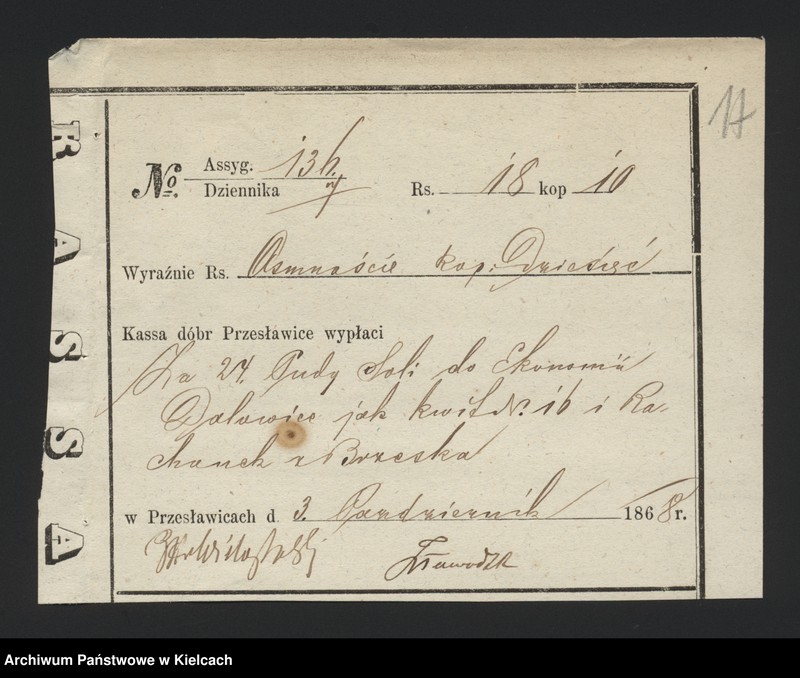 KASSA
11
Assyg. 136.
No. Dziennika
Rs. 18 kop 10
Wyraźnie Rs. Osmnaście kop. Dziesięć
Kassa dóbr Przesławice wypłaci
Za 24. Pudy Soli do Ekonomii
jak kwit Nr. 16 i Ra-
chunek z Brzeska
w Przesławicach d. 3. Pazdziernik 1868 r.
Archiwum Państwowe w Kielcach